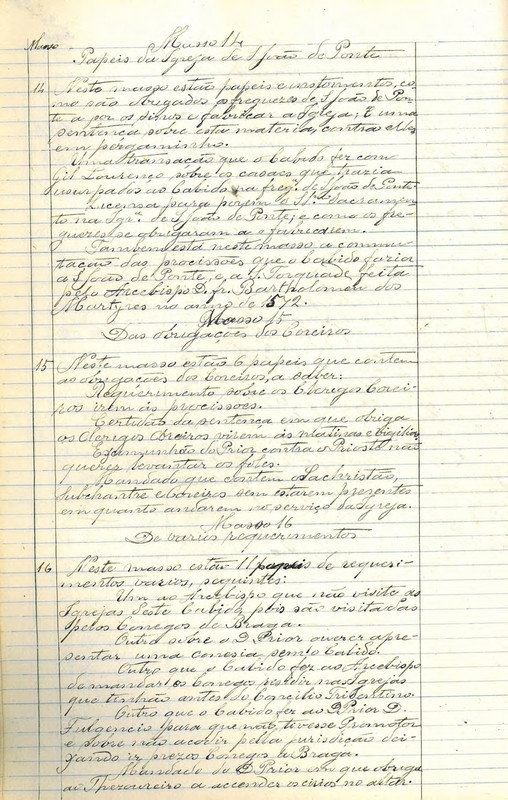 Masso 14
Masso
Papeis da Igreja de S João de Ponte
14 Neste masso estão papeis e instromentos, co-
mo são obrigados os freguezes de S João de Pon-
te a por os sinos e fabricar a Igreja; E uma
sentença sobre esta materia, contra elles
em pergaminho.
Uma transação que o Cabido fez com
Gil Lourenço sobre os casaes que trazia
usurpados ao Cabido na freg. de S João de Ponte
Licença para porem o SS.mo Sacramen-
to na Igr.ª de S João de Ponte, e como os fre-
guezes se obrigaram a o fabricarem.
Tambem está neste masso, a commu-
tação das procissões que o Cabido fazia
a S João de Ponte, e a S. Torquade, feita
pelo Arcebispo D. fr. Bartholomeu dos
Martyres no anno de 1572.
Masso 15
Das obrigações dos Coreiros
15 Neste masso estão 6 papeis que contem
as obrigações dos Coreiros, a saber:
Requerimento sobre os Clerigos Corei-
ros irem ás procissões.
Certidão da sentença em que obriga
os Clerigos Coreiros virem ás matinas e vigilias
Excomunhão do Prior contra o Prioste não
querer levantar os foles.
Mandado que contem o Sachristão,
Subchantre e Coreiros bem estarem presentes
em quanto andarem no serviço da Igreja.
Masso 16
De varios requerimentos
16 Neste masso estão 11 papeis de requeri-
mentos varios, seguintes:
Um ao Arcebispo que não visite as
Igrejas deste Cabido, pois são visitadas
pelos Conegos de Braga.
Outro sobre o D. Prior querer apre-
sentar uma conesia, sem o Cabido.
Outro que o Cabido fez ao Arcebispo
de mandar os Conegos residir nas Igrejas
que tinhão antes do Concilio Tridentino.
Outro que o Cabido fez ao D Prior D.
Fulgencio para que não tivesse Promotor
e sobre não acodir pella jurisdição dei-
xando ir prezos Conegos a Braga.
Mandado do D Prior em que obriga
ao Thezoureiro a accender os cirios no altar.